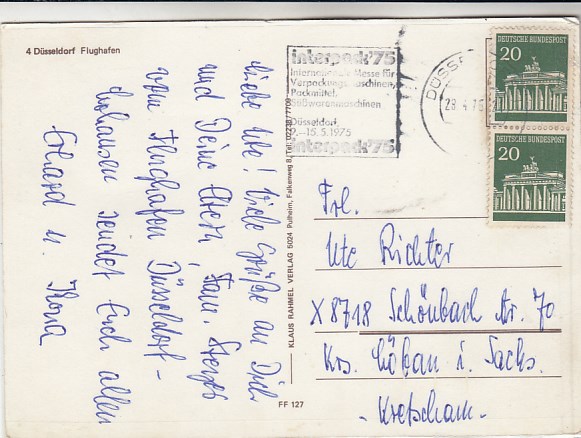 4 Düsseldorf Flughafen
Liebe Ute! Viele Grüße an Dich
und Deine Eltern, Fam.
vom Flughafen Düsseldorf-
Lohausen sendet Euch allen
Erhard u. Ilona
interpack'75
Internationale Messe für
Verpackungsmaschinen,
Packmittel,
Süßwarenmaschinen
Düsseldorf,
9.–15.5.1975
interpack'75
DÜSSE
28.4.75
DEUTSCHE BUNDESPOST
20
DEUTSCHE BUNDESPOST
20
KLAUS RAHMEL VERLAG 5024 Pulheim, Falkenweg 8, Tel. 02238/7709
Frl.
Ute Richter
X 8718 Schönbach Nr. 70
Krs. Löbau i. Sachs.
- Kretscham -
FF 127